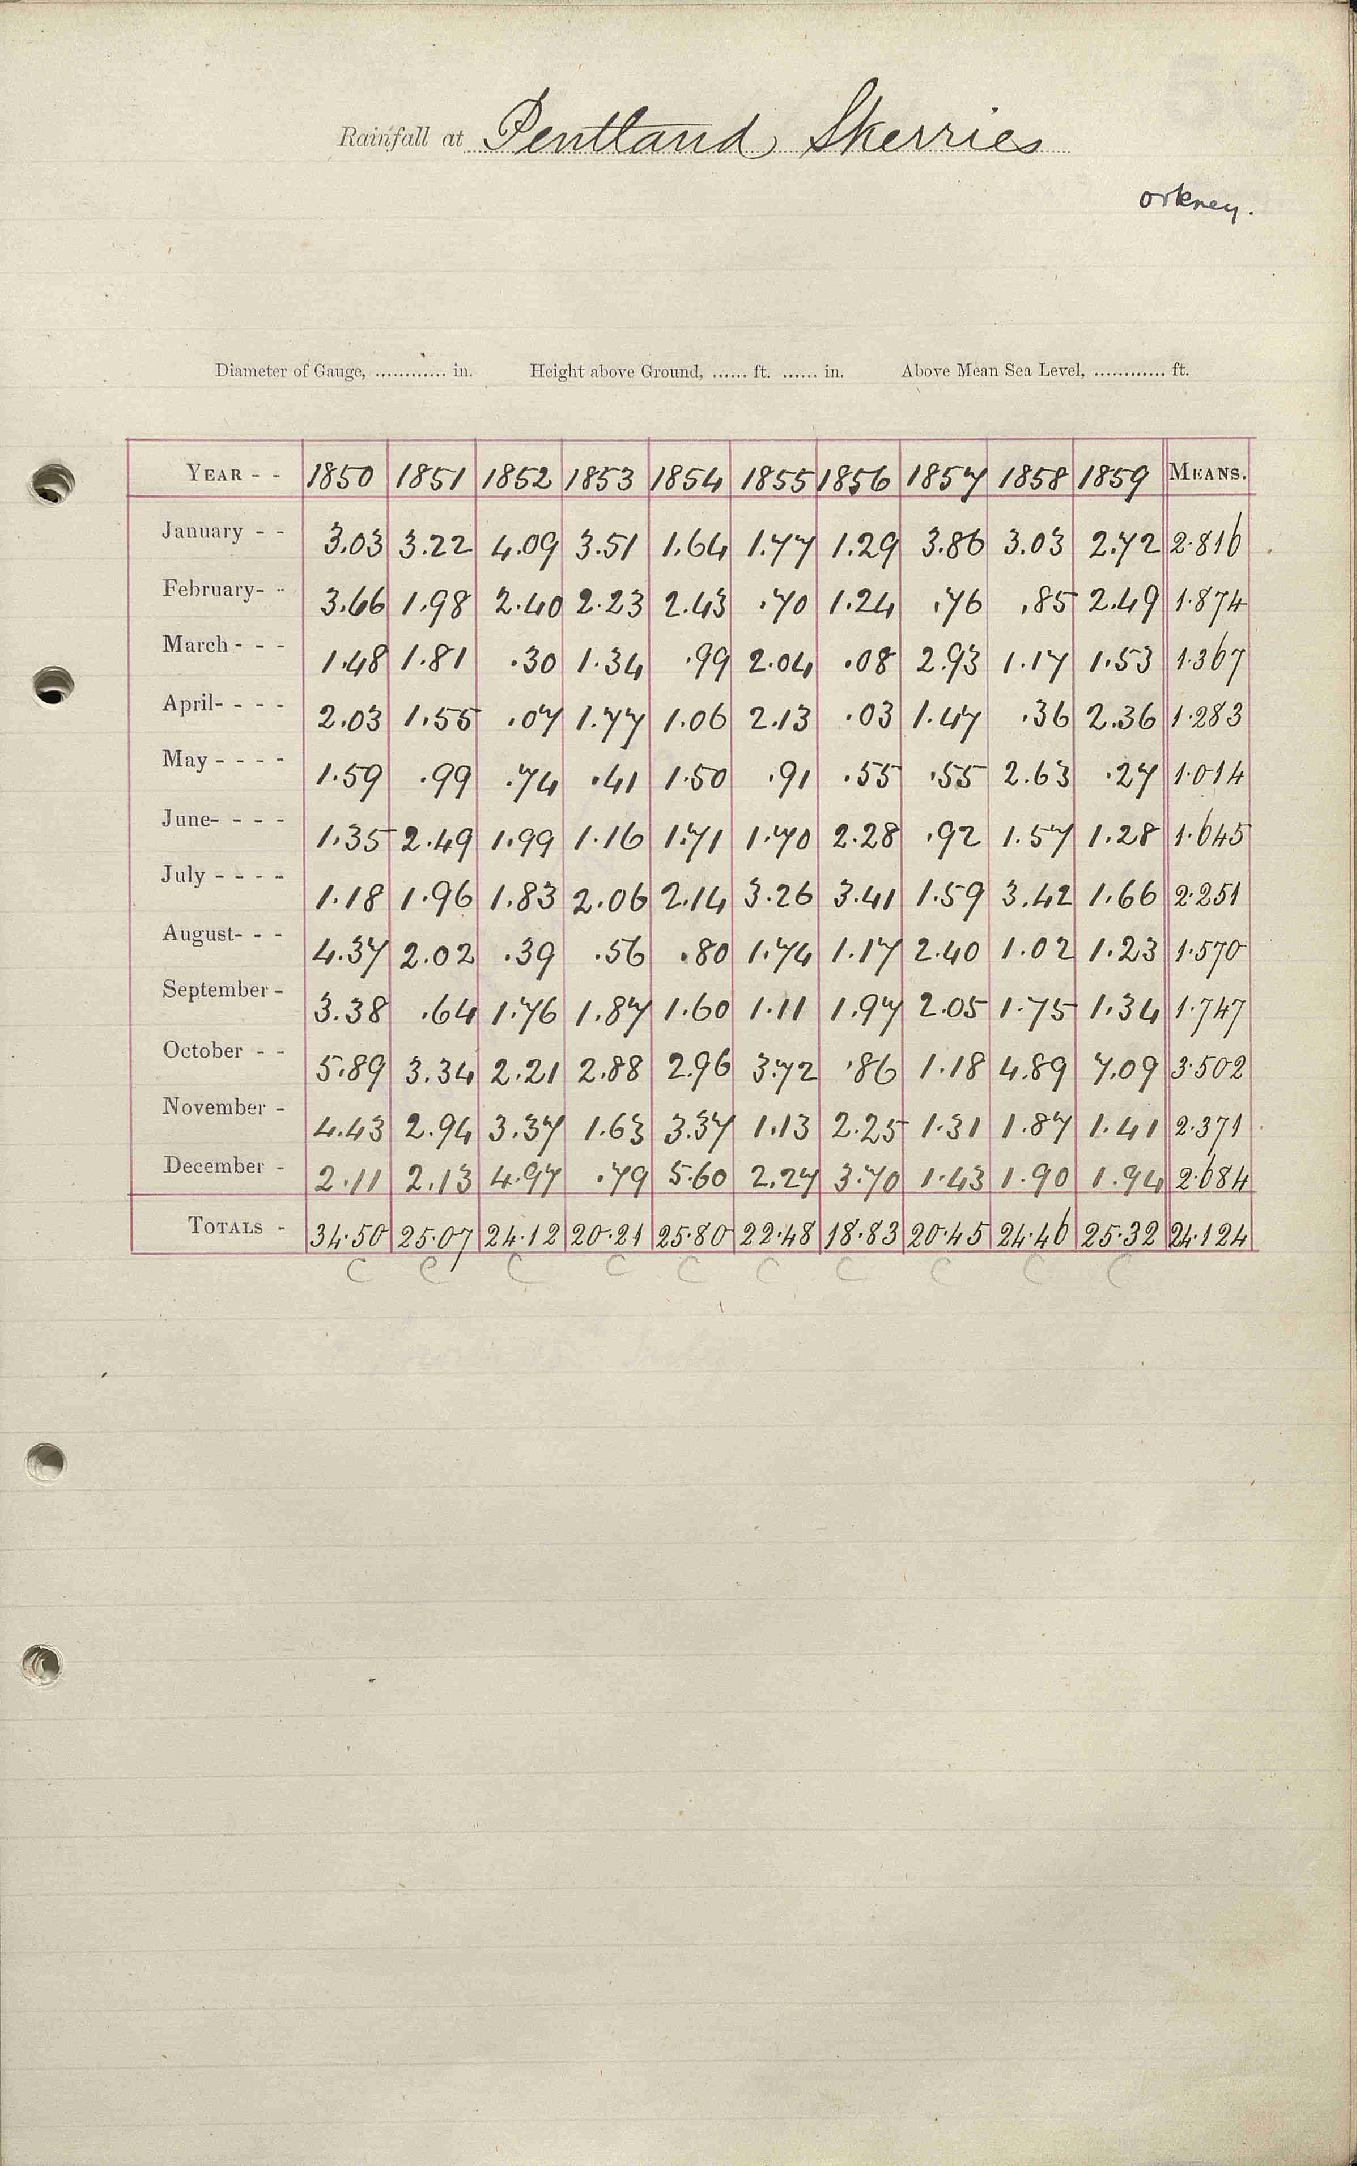 Rainfall at Pentland Skerries
Orkney.
Diameter of Gauge, ............ in. Height above Ground, ...... ft. ...... in. Above Mean Sea Level, ............ ft.
YEAR - - 1850 1851 1852 1853 1854 1855 1856 1857 1858 1859 MEANS.
January - - 3.03 3.22 4.09 3.51 1.64 1.77 1.29 3.86 3.03 2.72 2.816
February- - 3.66 1.98 2.40 2.23 2.43 .70 1.24 .76 .85 2.49 1.874
March - - - 1.48 1.81 .30 1.34 .99 2.04 .08 2.93 1.17 1.53 1.367
April- - - - 2.03 1.55 .07 1.77 1.06 2.13 .03 1.47 .36 2.36 1.283
May - - - - 1.59 .99 .74 .41 1.50 .91 .55 .55 2.63 .27 1.014
June- - - - 1.35 2.49 1.99 1.16 1.71 1.70 2.28 .92 1.57 1.28 1.645
July - - - - 1.18 1.96 1.83 2.06 2.14 3.26 3.41 1.59 3.42 1.66 2.251
August- - - 4.37 2.02 .39 .56 .80 1.74 1.17 2.40 1.02 1.23 1.570
September - 3.38 .64 1.76 1.87 1.60 1.11 1.97 2.05 1.75 1.34 1.747
October - - 5.89 3.34 2.21 2.88 2.96 3.72 .86 1.18 4.89 7.09 3.502
November - 4.43 2.94 3.37 1.63 3.37 1.13 2.25 1.31 1.87 1.41 2.371
December - 2.11 2.13 4.97 .79 5.60 2.27 3.70 1.43 1.90 1.94 2.684
TOTALS - 34.50 25.07 24.12 20.21 25.80 22.48 18.83 20.45 24.46 25.32 24.124
C C C C C C C C C C